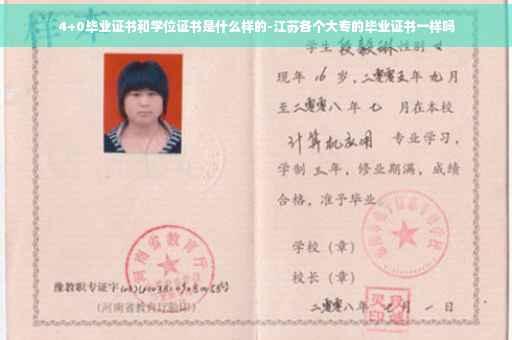 4+0毕业证书和学位证书是什么样的-江苏各个大专的毕业证书一样吗
样本
学生 性别 女
现年 16 岁，二零零五年 九月
至二零零八年 七 月在本校
计算机应用 专业学习，
学制 三年，修业期满，成绩
合格，准予毕业
学校（章）
校长（章）
二零零八年 月 一 日
河南省教育厅
豫教职专证字 号
（河南省教育厅验印）